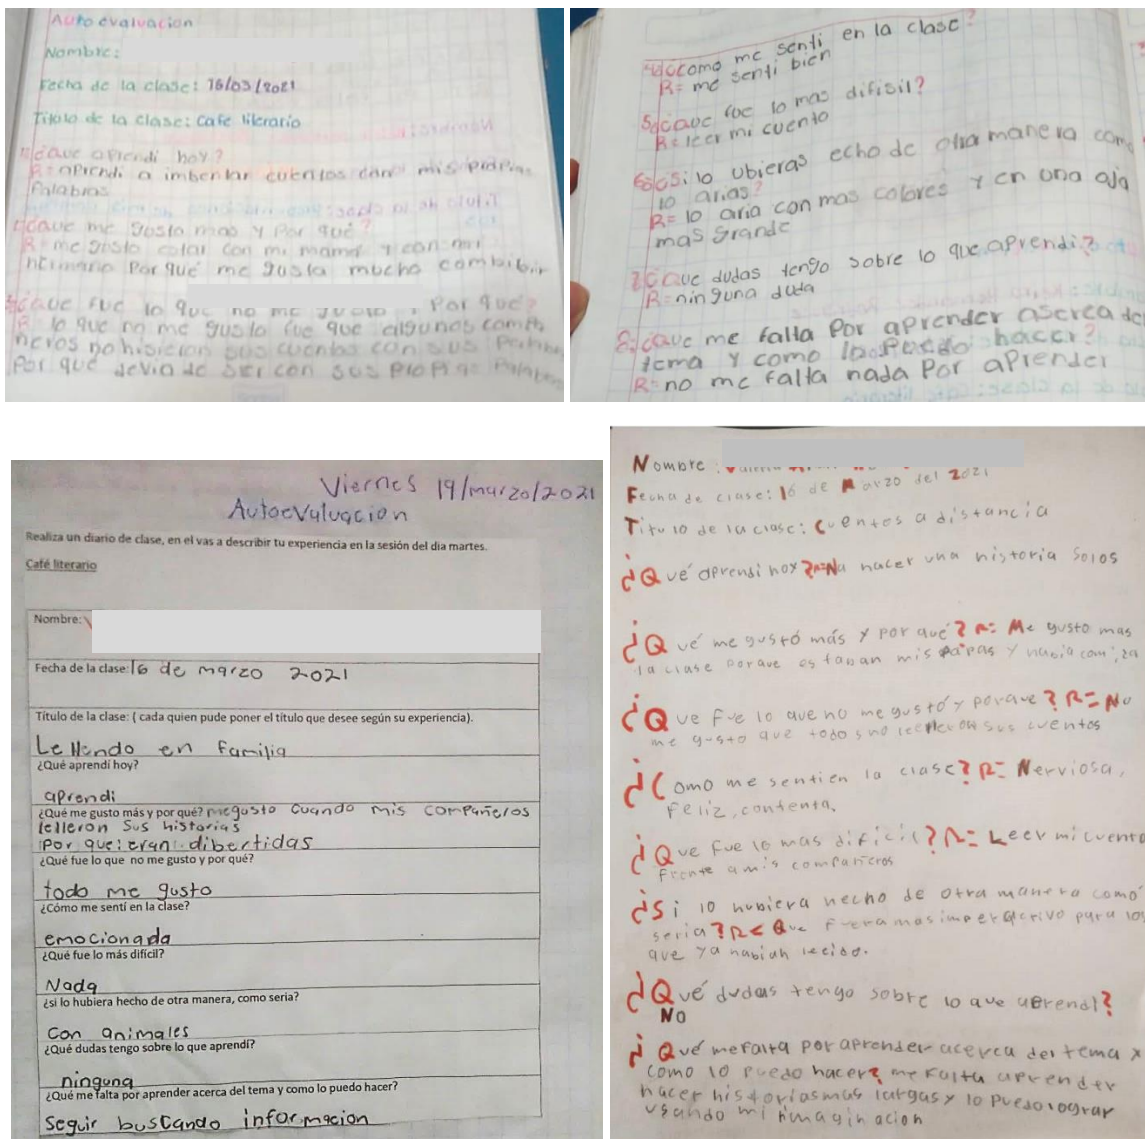 Auto evaluacion
Nombre:
Fecha de la clase: 16/03/2021
Titolo de la clase: Cafe literario
¿Que aprendi hoy?
R= aprendi a imbentar cuentos con mis propias
Palabras
¿Que me gusta mas y Por qué?
R= me gusto estar con mi mamá y con mi
hermano Por qué me gusta mucho combibir
¿Que fue lo que no me gusto y Por que?
R= lo que no me gusto fue que algunos compa
ñeros no hisieron sus cuentos con sus Palabras
Por qué devia de ser con sus propias Palabras
4 ¿como me senti en la clase?
R= me senti bien
5 ¿Que fue lo mas difisil?
R= leer mi cuento
6 ¿Si lo ubieras echo de otra manera como
lo arias?
R= lo aria con mas colores y en una oja
mas grande
7 ¿Que dudas tengo sobre lo que aprendi?
R= ninguna duda
8. ¿Que me falta Por aprender aserca de
tema y como lo puedo hacer?
R= no me falta nada Por aprender
Viernes 19/marzo/2021
Autoevaluacion
Realiza un diario de clase, en el vas a describir tu experiencia en la sesión del dia martes.
Café literario
Nombre:
Fecha de la clase: 16 de marzo 2021
Título de la clase: ( cada quien pude poner el título que desee según su experiencia).
Lellendo en familia
¿Qué aprendí hoy?
aprendi
¿Qué me gusto más y por qué? me gusto cuando mis compañeros
lelleron sus historias
por que: eran: dibertidas
¿Qué fue lo que no me gusto y por qué?
todo me gusto
¿Cómo me sentí en la clase?
emocionada
¿Qué fue lo más difícil?
Nada
¿si lo hubiera hecho de otra manera, como seria?
con animales
¿Qué dudas tengo sobre lo que aprendí?
ninguna
¿Qué me falta por aprender acerca del tema y como lo puedo hacer?
Seguir buscando informacion
Nombre:
Fecha de clase: 16 de Marzo del 2021
Titulo de la clase: Cuentos a distancia
¿Qué aprendi hoy? R= a hacer una historia solos
¿Qué me gustó más y por qué? R= Me gusto mas
la clase porque estaban mis papas y hacia comiza
¿Que fue lo que no me gustó y porque? R= No
me gusto que todos no leelleron sus cuentos
¿Como me senti en la clase? R= Nerviosa,
feliz, contenta.
¿Que fue lo mas dificil? R= Leer mi cuento
frente a mis compañeros
¿Si lo hubiera hecho de otra manera como
seria? R= Que fuera mas imperactivo para los
que ya habian leeido.
¿Qué dudas tengo sobre lo que aprendi?
No
¿Qué me falta por aprender acerca del tema y
como lo puedo hacer? me falta aprender
hacer historias mas largas y lo puedo lograr
usando mi himaginacion